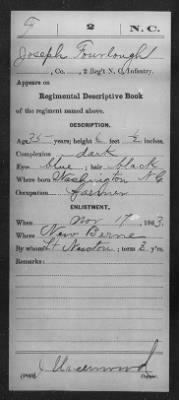 F 2 N.C.
Joseph Fourlough
, Co. , 2 Reg't N. C. Infantry.
Appears on
Regimental Descriptive Book
of the regiment named above.
DESCRIPTION.
Age 35 years; height 6 feet ½ inches.
Complexion dark
Eyes blue; hair black
Where born Washington N.C.
Occupation farmer
ENLISTMENT.
When Nov 17, 1863.
Where New Berne
By whom Lt Newton; term 3 y'rs.
Remarks:
Copyist.